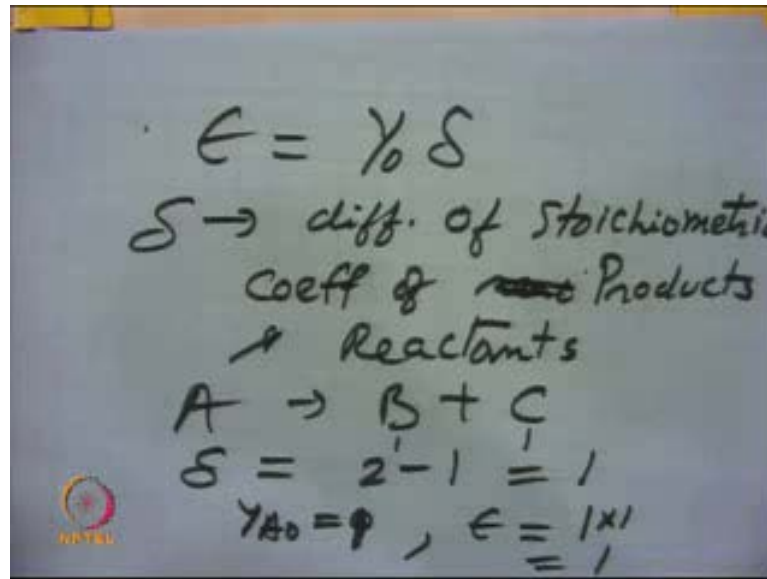 ϵ = y₀ δ
δ → diff. of Stoichiometri
Coeff of Products
& Reactants
A → B + C
δ = 2 - 1 = 1
y_A0 = 1 , ϵ = 1×1
= 1
NPTEL